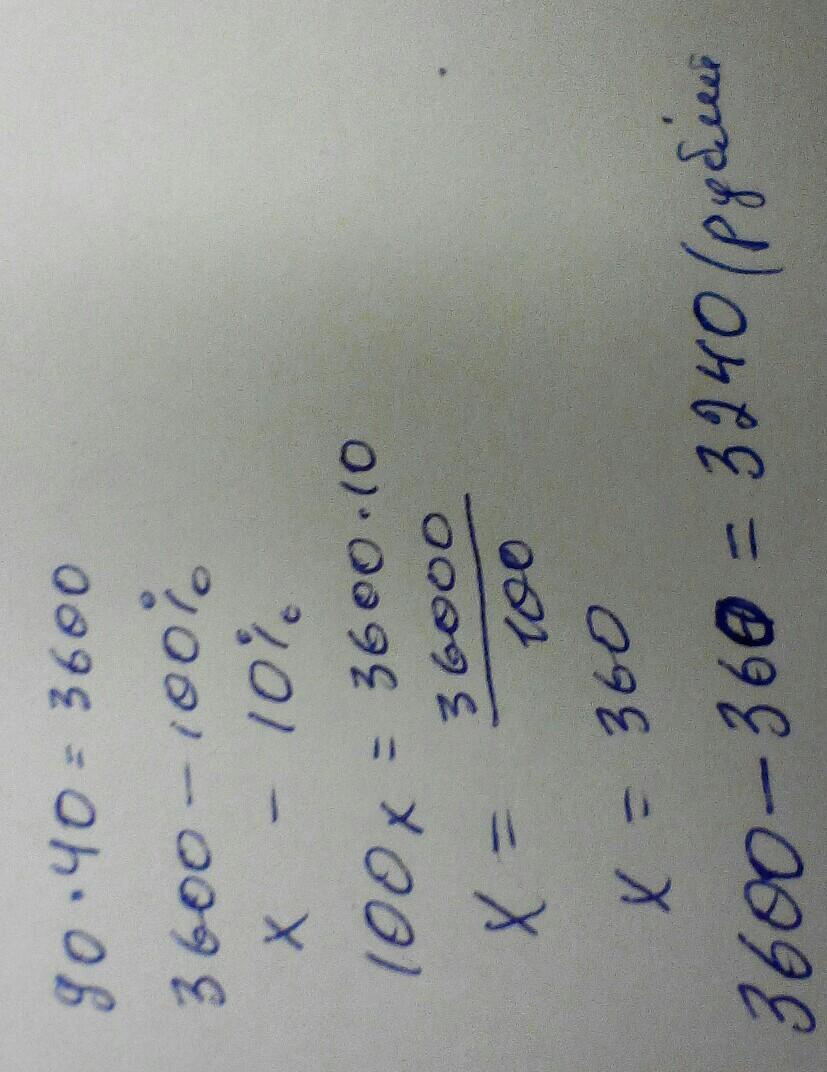 90 · 40 = 3600
3600 - 100%
x - 10%
100x = 3600 · 10
x = 36000
100
x = 360
3600 - 360 = 3240 (рублей